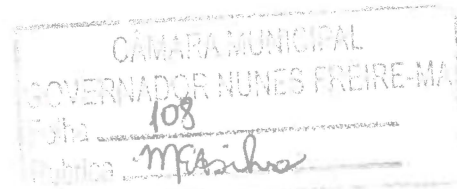 CÂMARA MUNICIPAL
GOVERNADOR NUNES FREIRE-MA
Folha 108
Rubrica